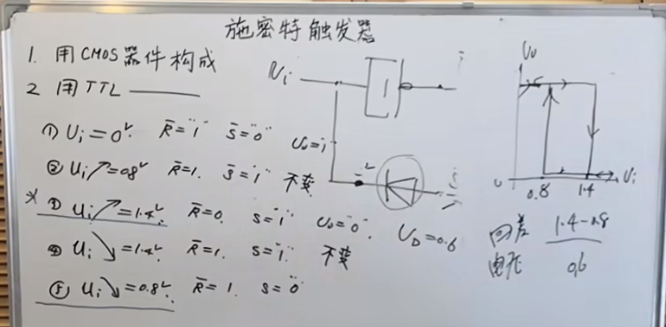 施密特触发器
1. 用CMOS器件构成
2 用TTL ———
① Ui=0ᵛ. R̅="1" S̅="0" Uo=1
② Ui↗=0.8ᵛ R̅=1. S̅="1" 不变
※ ③ Ui↗=1.4ᵛ. R̅=0. S="1" Uo="0".
④ Ui↘=1.4ᵛ. R̅=1. S="1". 不变
⑤ Ui↘=0.8ᵛ. R̅=1. S="0"
Ui
1
UD=0.6
Uo
0.8 1.4 Ui
回差 1.4-0.8
电压 0.6